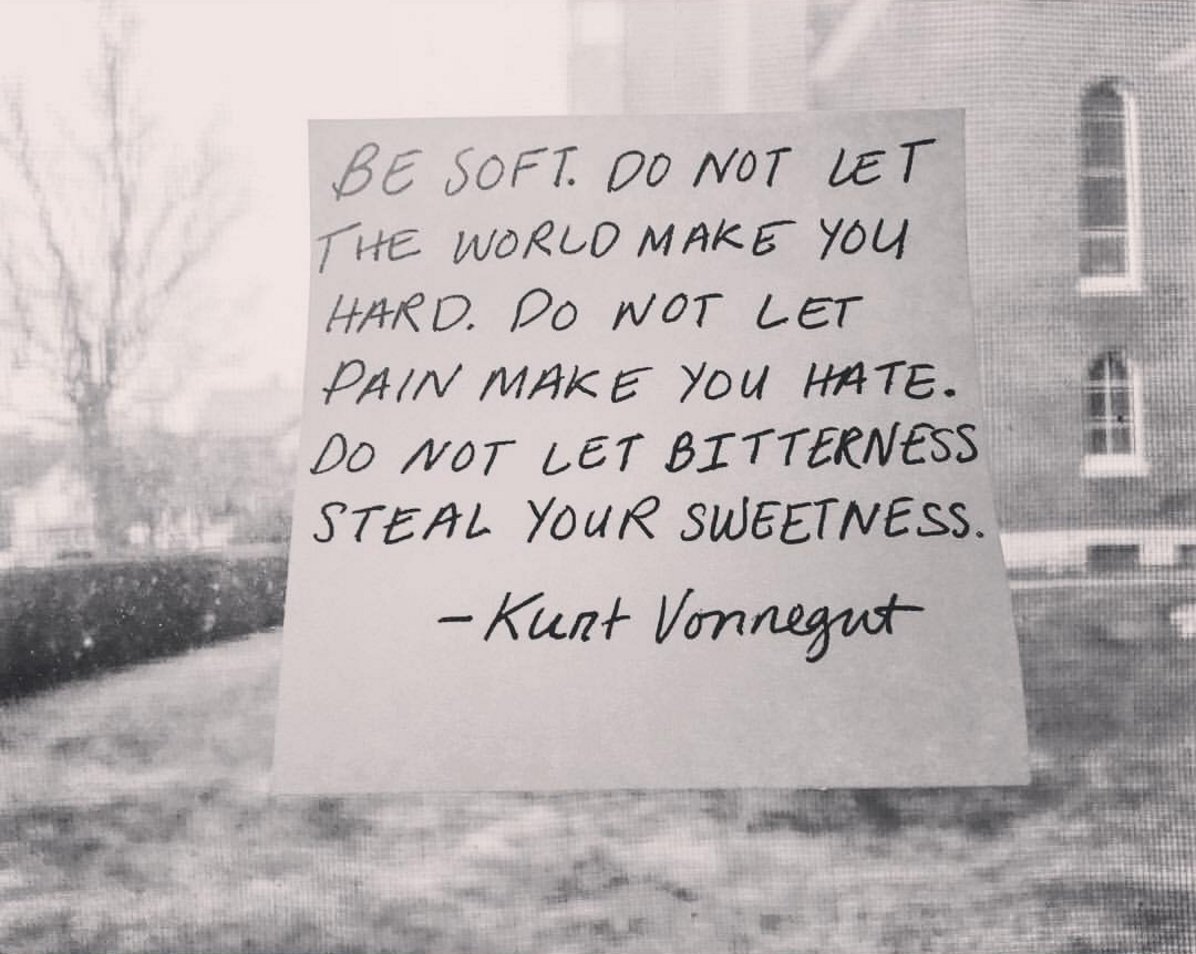 BE SOFT. DO NOT LET
THE WORLD MAKE YOU
HARD. DO NOT LET
PAIN MAKE YOU HATE.
DO NOT LET BITTERNESS
STEAL YOUR SWEETNESS.
- Kurt Vonnegut